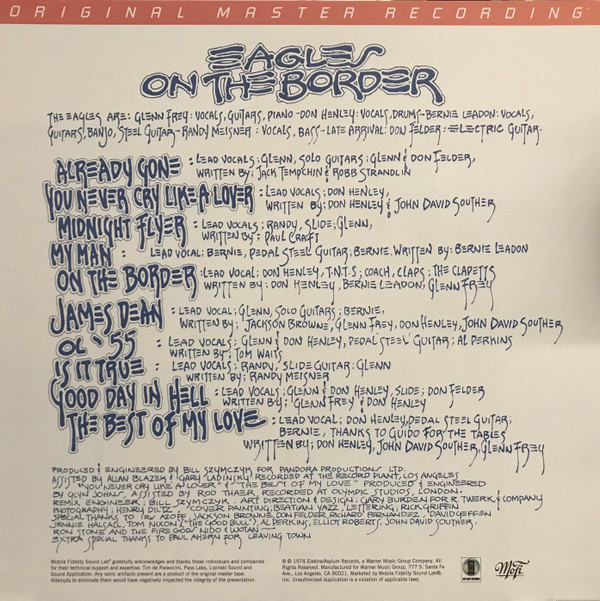 ORIGINAL MASTER RECORDING
EAGLES
ON THE BORDER
THE EAGLES ARE: GLENN FREY: VOCALS, GUITARS, PIANO - DON HENLEY: VOCALS, DRUMS - BERNIE LEADON: VOCALS,
GUITARS, BANJO, STEEL GUITAR - RANDY MEISNER: VOCALS, BASS - LATE ARRIVAL: DON FELDER: ELECTRIC GUITAR.
ALREADY GONE : LEAD VOCALS; GLENN, SOLO GUITARS: GLENN & DON FELDER,
WRITTEN BY; JACK TEMPCHIN & ROBB STRANDLIN
YOU NEVER CRY LIKE A LOVER : LEAD VOCALS; DON HENLEY,
WRITTEN BY; DON HENLEY & JOHN DAVID SOUTHER
MIDNIGHT FLYER : LEAD VOCALS; RANDY, SLIDE; GLENN,
WRITTEN BY; PAUL CRAFT
MY MAN : LEAD VOCAL: BERNIE, PEDAL STEEL GUITAR; BERNIE. WRITTEN BY: BERNIE LEADON
ON THE BORDER : LEAD VOCAL: DON HENLEY, T.N.T.S; COACH, CLAPS: THE CLAPETTS
WRITTEN BY: DON HENLEY, BERNIE LEADON, GLENN FREY
JAMES DEAN : LEAD VOCAL; GLENN, SOLO GUITARS; BERNIE,
WRITTEN BY; JACKSON BROWNE, GLENN FREY, DON HENLEY, JOHN DAVID SOUTHER
OL '55 : LEAD VOCALS; GLENN & DON HENLEY, PEDAL STEEL GUITAR; AL PERKINS
WRITTEN BY; TOM WAITS
IS IT TRUE : LEAD VOCALS; RANDY, SLIDE GUITAR; GLENN
WRITTEN BY; RANDY MEISNER
GOOD DAY IN HELL : LEAD VOCALS; GLENN & DON HENLEY, SLIDE; DON FELDER
WRITTEN BY; GLENN FREY & DON HENLEY
THE BEST OF MY LOVE : LEAD VOCAL; DON HENLEY, PEDAL STEEL GUITAR;
BERNIE, THANKS TO GUIDO FOR THE TABLES
WRITTEN BY; DON HENLEY, JOHN DAVID SOUTHER, GLENN FREY
PRODUCED & ENGINEERED BY BILL SZYMCZYK FOR PANDORA PRODUCTIONS LTD.
ASSISTED BY ALLAN BLAZEK & GARY LADINSKY RECORDED AT THE RECORD PLANT, LOS ANGELES
"YOU NEVER CRY LIKE A LOVER" & "THE BEST OF MY LOVE" PRODUCED & ENGINEERED
BY GLYN JOHNS, ASSISTED BY ROD THAER RECORDED AT OLYMPIC STUDIOS, LONDON.
REMIX ENGINEER: BILL SZYMCZYK - ART DIRECTION & DESIGN: GARY BURDEN FOR R. TWERK & COMPANY
PHOTOGRAPHY: HENRY DILTZ - COVER PAINTING: BEATIAN YAZZ, LETTERING, RICK GRIFFIN
SPECIAL THANKS TO IRV AZOFF, JACKSON BROWNE, DON FELDER, RICHARD FERNANDEZ, DAVID GEFFEN
JENNIE HALSALL, TOM NIXON ("THE GOOD BULL"), AL PERKINS, ELLIOT ROBERTS, JOHN DAVID SOUTHER.
RON STONE AND THE FIRE GOD/NIDOT'WOTAN —
EXTRA SPECIAL THANKS TO PAUL AHERN FOR LEAVING TOWN
Mobile Fidelity Sound Lab® gratefully acknowledges and thanks these individuals and companies
for their technical support and expertise: Tim de Paravicini, Pass Labs, Lipinski Sound and
Sound Application. Any sonic artifacts present are a product of the original master tape.
Attempts to eliminate them would have negatively impacted the integrity of the presentation.
℗ © 1974 Elektra/Asylum Records, a Warner Music Group Company. All
Rights Reserved. Manufactured for Warner Music Group, 777 S. Santa Fe
Ave., Los Angeles, CA 90021. Marketed by Mobile Fidelity Sound Lab®,
Inc. Unauthorized duplication is a violation of applicable laws.
MoFi